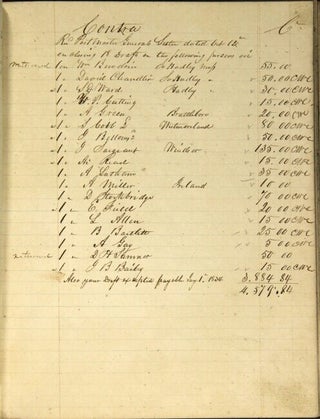 Contra Cr
Post Master General Letter dated Oct 12th
enclosing 18 Drafts on the following persons viz
returned 1 on Wm Bowdoin So Hadley Mass 55.00
1 " David Chandler So Hadley " 50.00 CWC
1 " J D Ward Hadley " 30.00 CWC
1 " W. P. Cutting 15.00 CWC
1 " A Green Brattleboro " 20.00 CWC
1 " S Cobb Westmoreland " 80 00 CWC
1 " J Bellows " 50.00 CWC
1 " J Sargeant Windsor " 135.00 CWC
1 " N. Read " 15 00 CWC
1 " A Latham " 35 00 CWC
1 " A Miller " 10 00
1 " D Stockbridge " 70 00 CWC
1 " C. Field " 20 00 CWC
1 " L Allen " 15 00 CWC
1 " B Bartlett " 25 00 CWC
1 " A Gay " 5 00 CWC
returned 1 " D H Sumner 50 00
1 " J B Baily " 15 00 CWC
Also your Draft accepted payable Jany 1st 1836 3.884 84
4.579.84